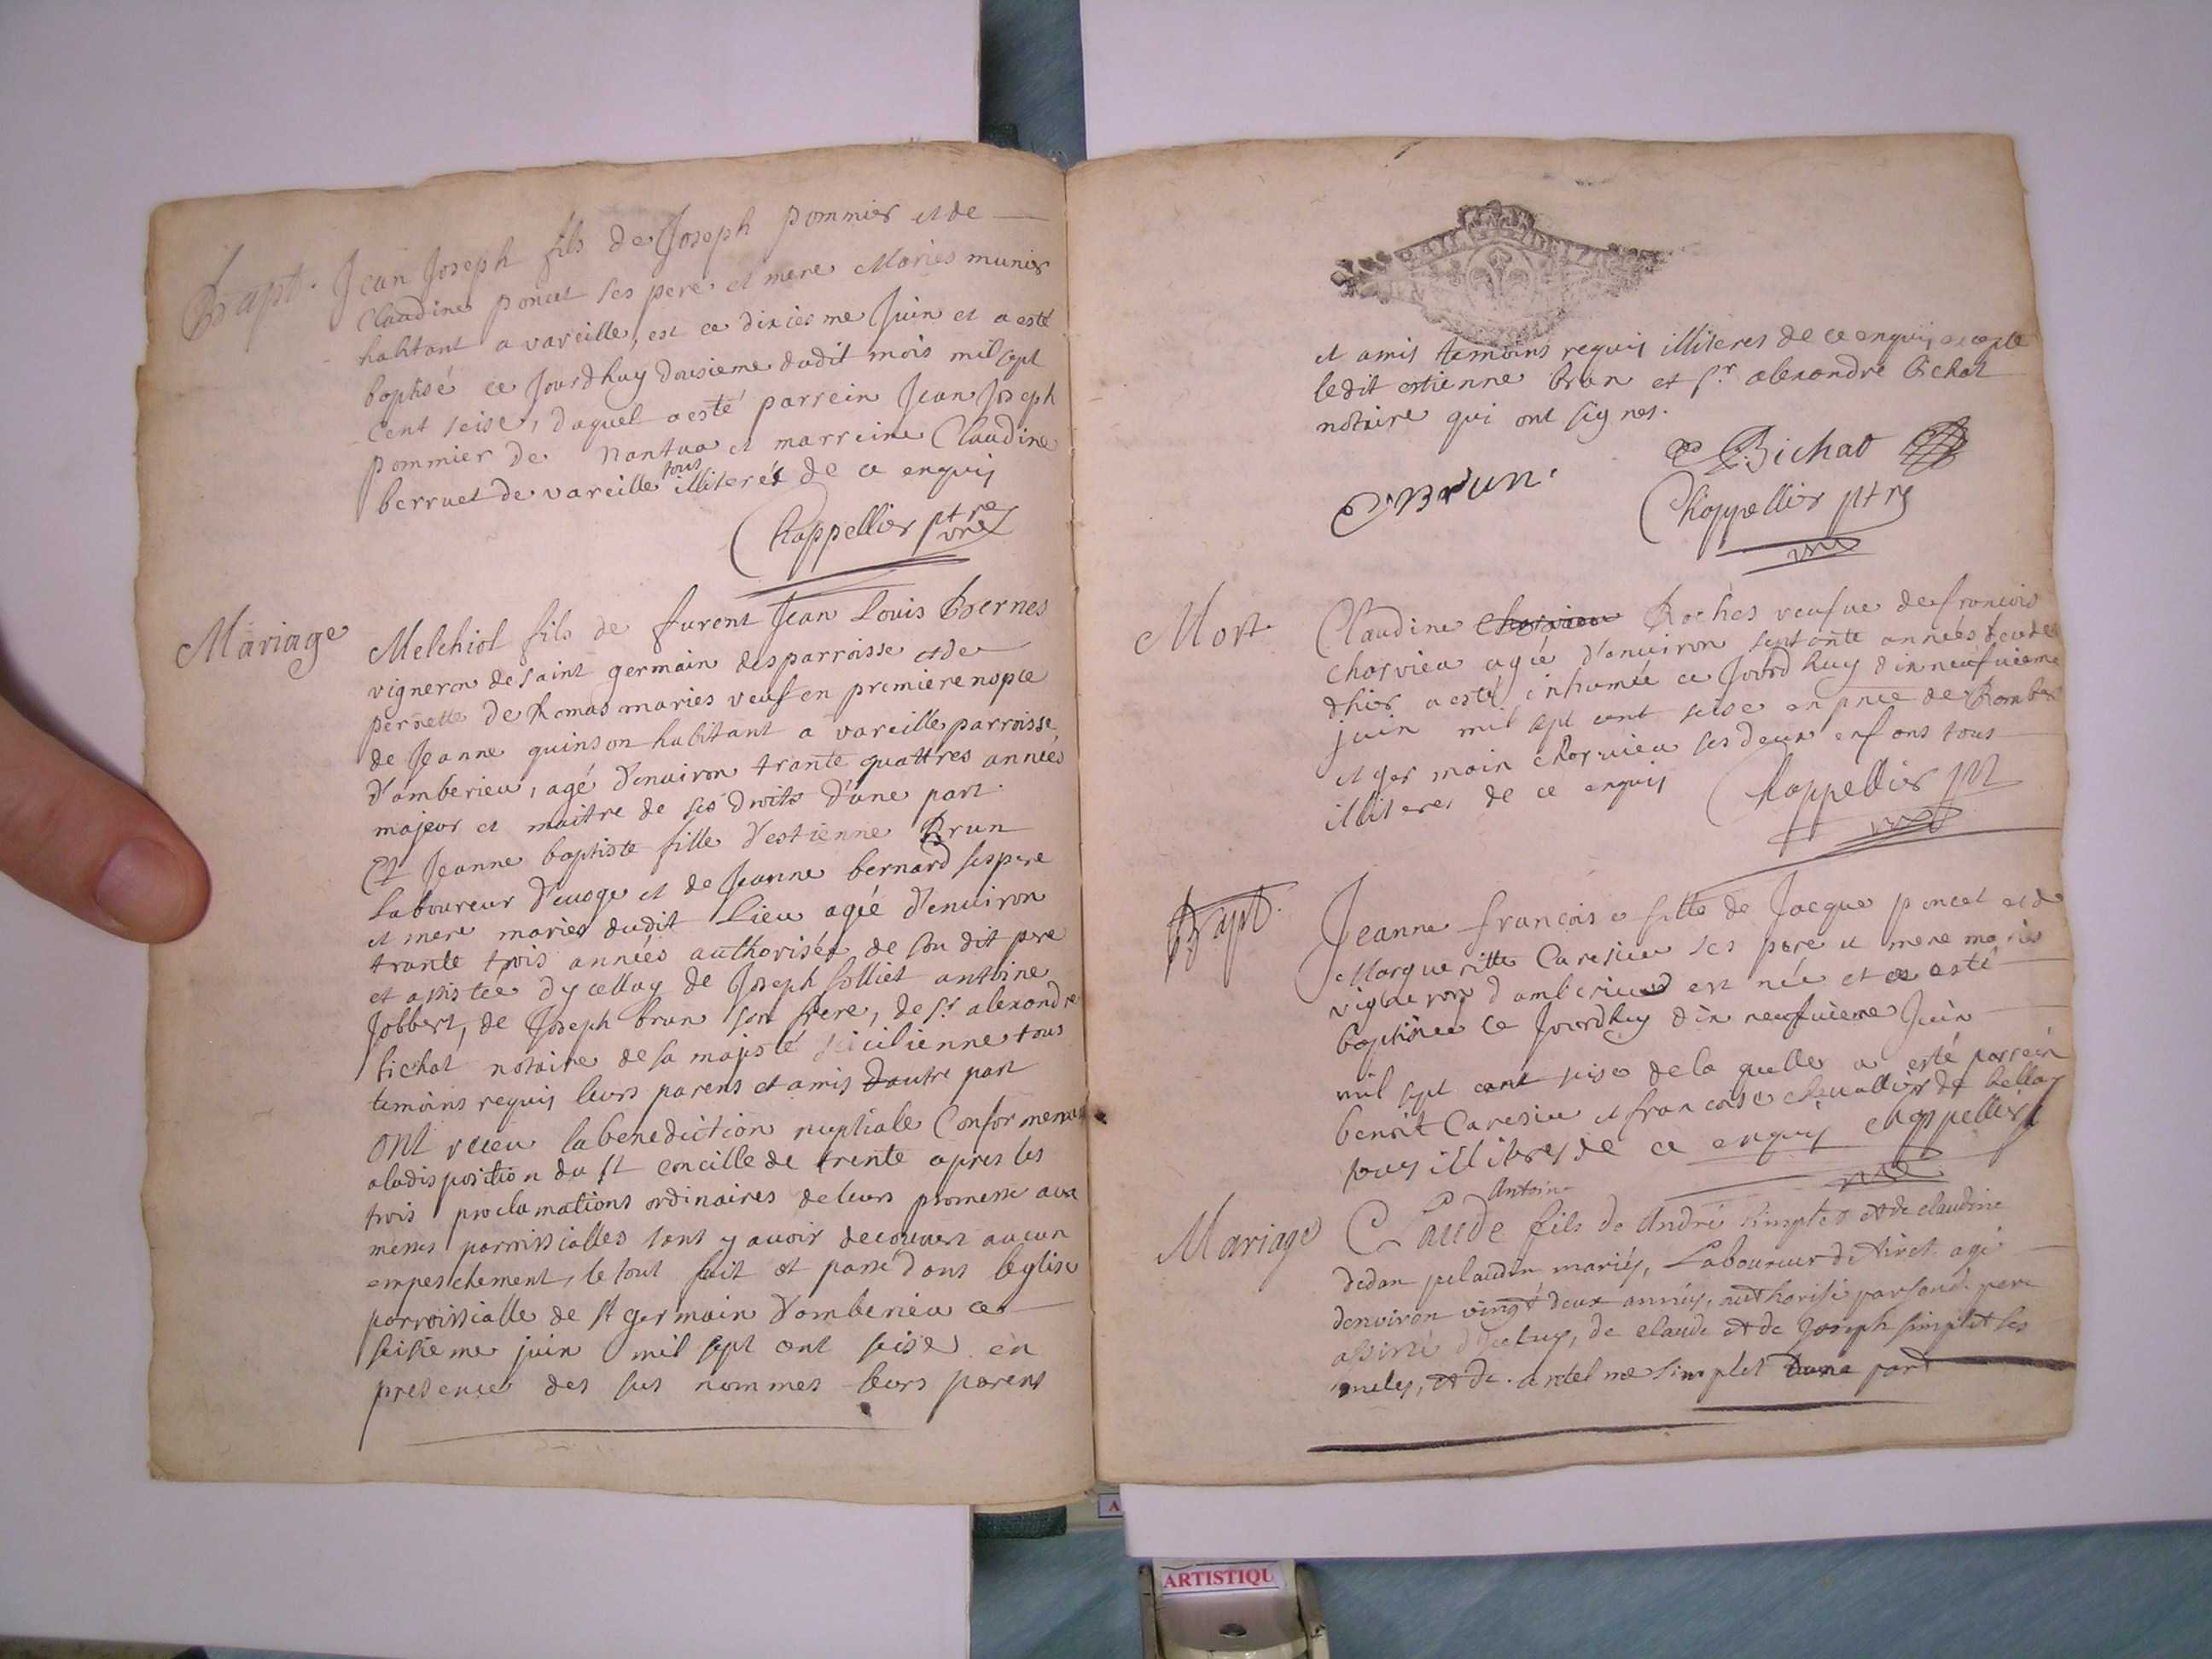 Bapt. Jean Joseph fils de Joseph pommier et de
Claudine poncet ses pere et mere Maries munier
habitant a vareille, est ce dixiesme Juin et a esté
baptisé ce Jourdhuy dousieme dudit mois mil sept
cent seise, duquel a esté parrein Jean Joseph
pommier de Nantua et marreine Claudine
berruet de vareille tous illiterés de ce enquis
Chappellier ptre vre
Mariage Melchiol fils de furent Jean Louis Bernes
vigneron de saint germain des parroisse et de
pernette de Romas maries veuf en premiere nopce
de Jeanne quinson habitant a vareille parroisse
d'amberieu, agé d'enuiron trante quattres années
majeur et maitre de ses droits d'une part.
Et Jeanne baptiste fille d'estienne Brun
Laboureur d'euoge et de Jeanne bernard ses pere
et mere maries dudit Lieu agée d'enuiron
trante trois années authorisée de son dit pere
et assistee dycelluy de Joseph folliet antoine
Jobbert, de Joseph brun son frere, de sr. alexandre
bichat notaire de sa majesté sicilienne tous
temoins requis leurs parens et amis d'autre part
ONt receu la benediction nuptiale Conformement
a la disposition du st concille de trente apres les
trois proclamations ordinaires de leurs promesse aux
messes parroissialles sans y auoir decouuert aucun
empeschement, le tout fait et passé dans leglise
parroissialle de st germain d'amberieu ce
seisieme juin mil sept cent seise en
presence des sus nommes leurs parens
et amis temoins requis illiteres de ce enquis excepte
ledit estienne brun et sr. alexandre bichat
notaire qui ont signes.
E. Brun. Bichat
Chappellier ptre
Mort Claudine Rochés veufue de francois
charvieu agée d'enuiron septante années
d'hier a esté inhumée ce Jourdhuy dixneufuieme
juin mil sept cent seise en pnce de Rombert
et germain charuieu ses deux enfans tous
illiteres de ce enquis Chappellier ptr
Bapt. Jeanne francoise fille de Jacque poncet et de
Marguerite Caresieu ses pere et mere maries
vigneron d'amberieu est née et a esté
baptisée ce Jourdhuy dix neufuieme Juin
mil sept cent seise de la quelle a esté parrein
benoit Caresieu et francoise cheuallier de bellay
tous illiteres de ce enquis chappellier
Mariage Claude Antoine fils de André simplet et de claudine
mariés, Laboureur de tiret agé
denviron vingt deux années, authorisé par sond. pere
assisté dycelluy, de claude et de Joseph simplet ses
et de antelme simplet d'une part
ARTISTIQU